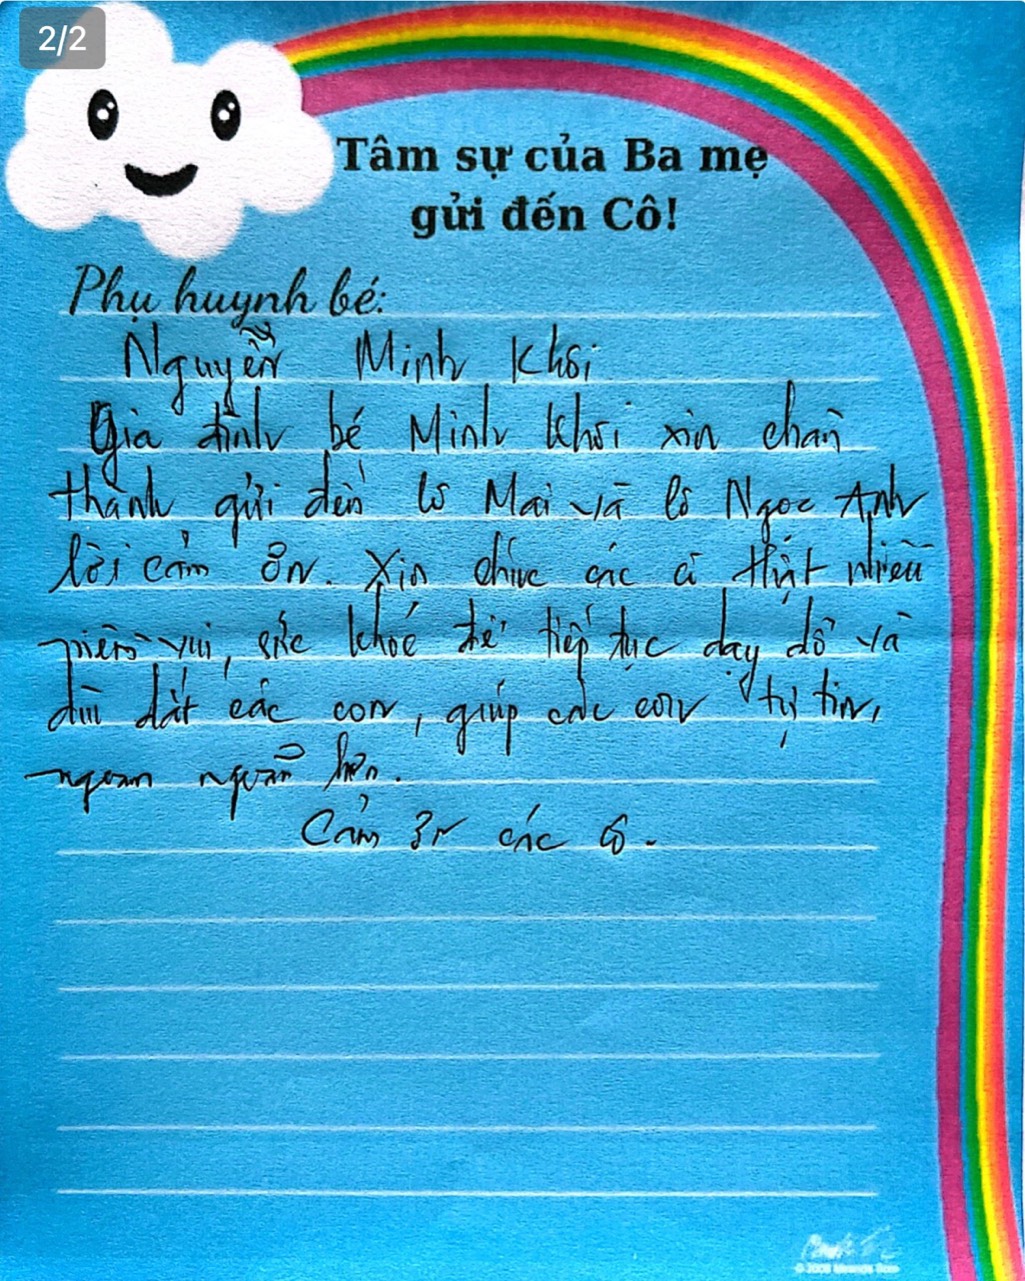 2/2
Tâm sự của Ba mẹ
gửi đến Cô!
Phụ huynh bé:
Nguyễn Minh Khôi
Gia đình bé Minh Khôi xin chân
thành gửi đến cô Mai và cô Ngọc Anh
lời cảm ơn. Xin chúc các cô thật nhiều
niềm vui, sức khoẻ để tiếp tục dạy dỗ và
dìu dắt các con, giúp các con tự tin,
ngoan ngoãn hơn.
Cảm ơn các cô.